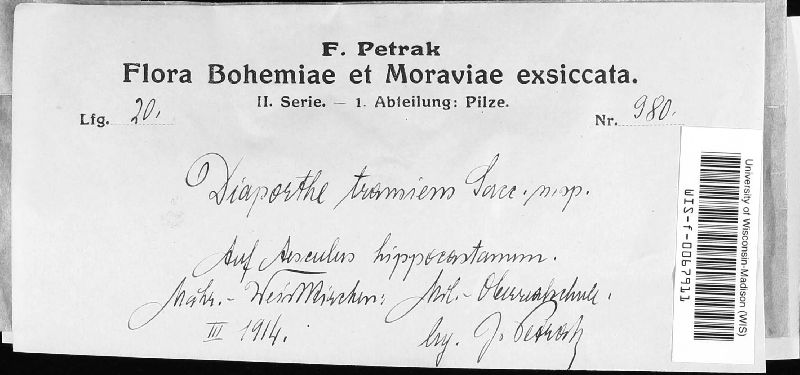 F. Petrak
Flora Bohemiae et Moraviae exsiccata.
II. Serie. — 1. Abteilung: Pilze.
Lfg. 20.
Nr. 980.
Diaporthe transiens Sacc. n. sp.
Auf Aesculus hippocastanum.
Mähr.-Weisskirchen: Mil.-Oberrealschule.
III 1914.
lg. J. Petrak
University of Wisconsin-Madison (WIS)
WIS-f-0067911